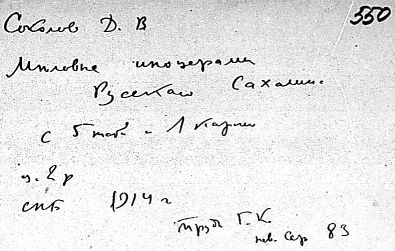 550
Соколов Д. В
Меловые иноцерамы
Русского Сахалина.
с 5 табл и 1 картой
ц. 2 р
СПБ 1914 г
Труды Г. К.
нов. сер 83